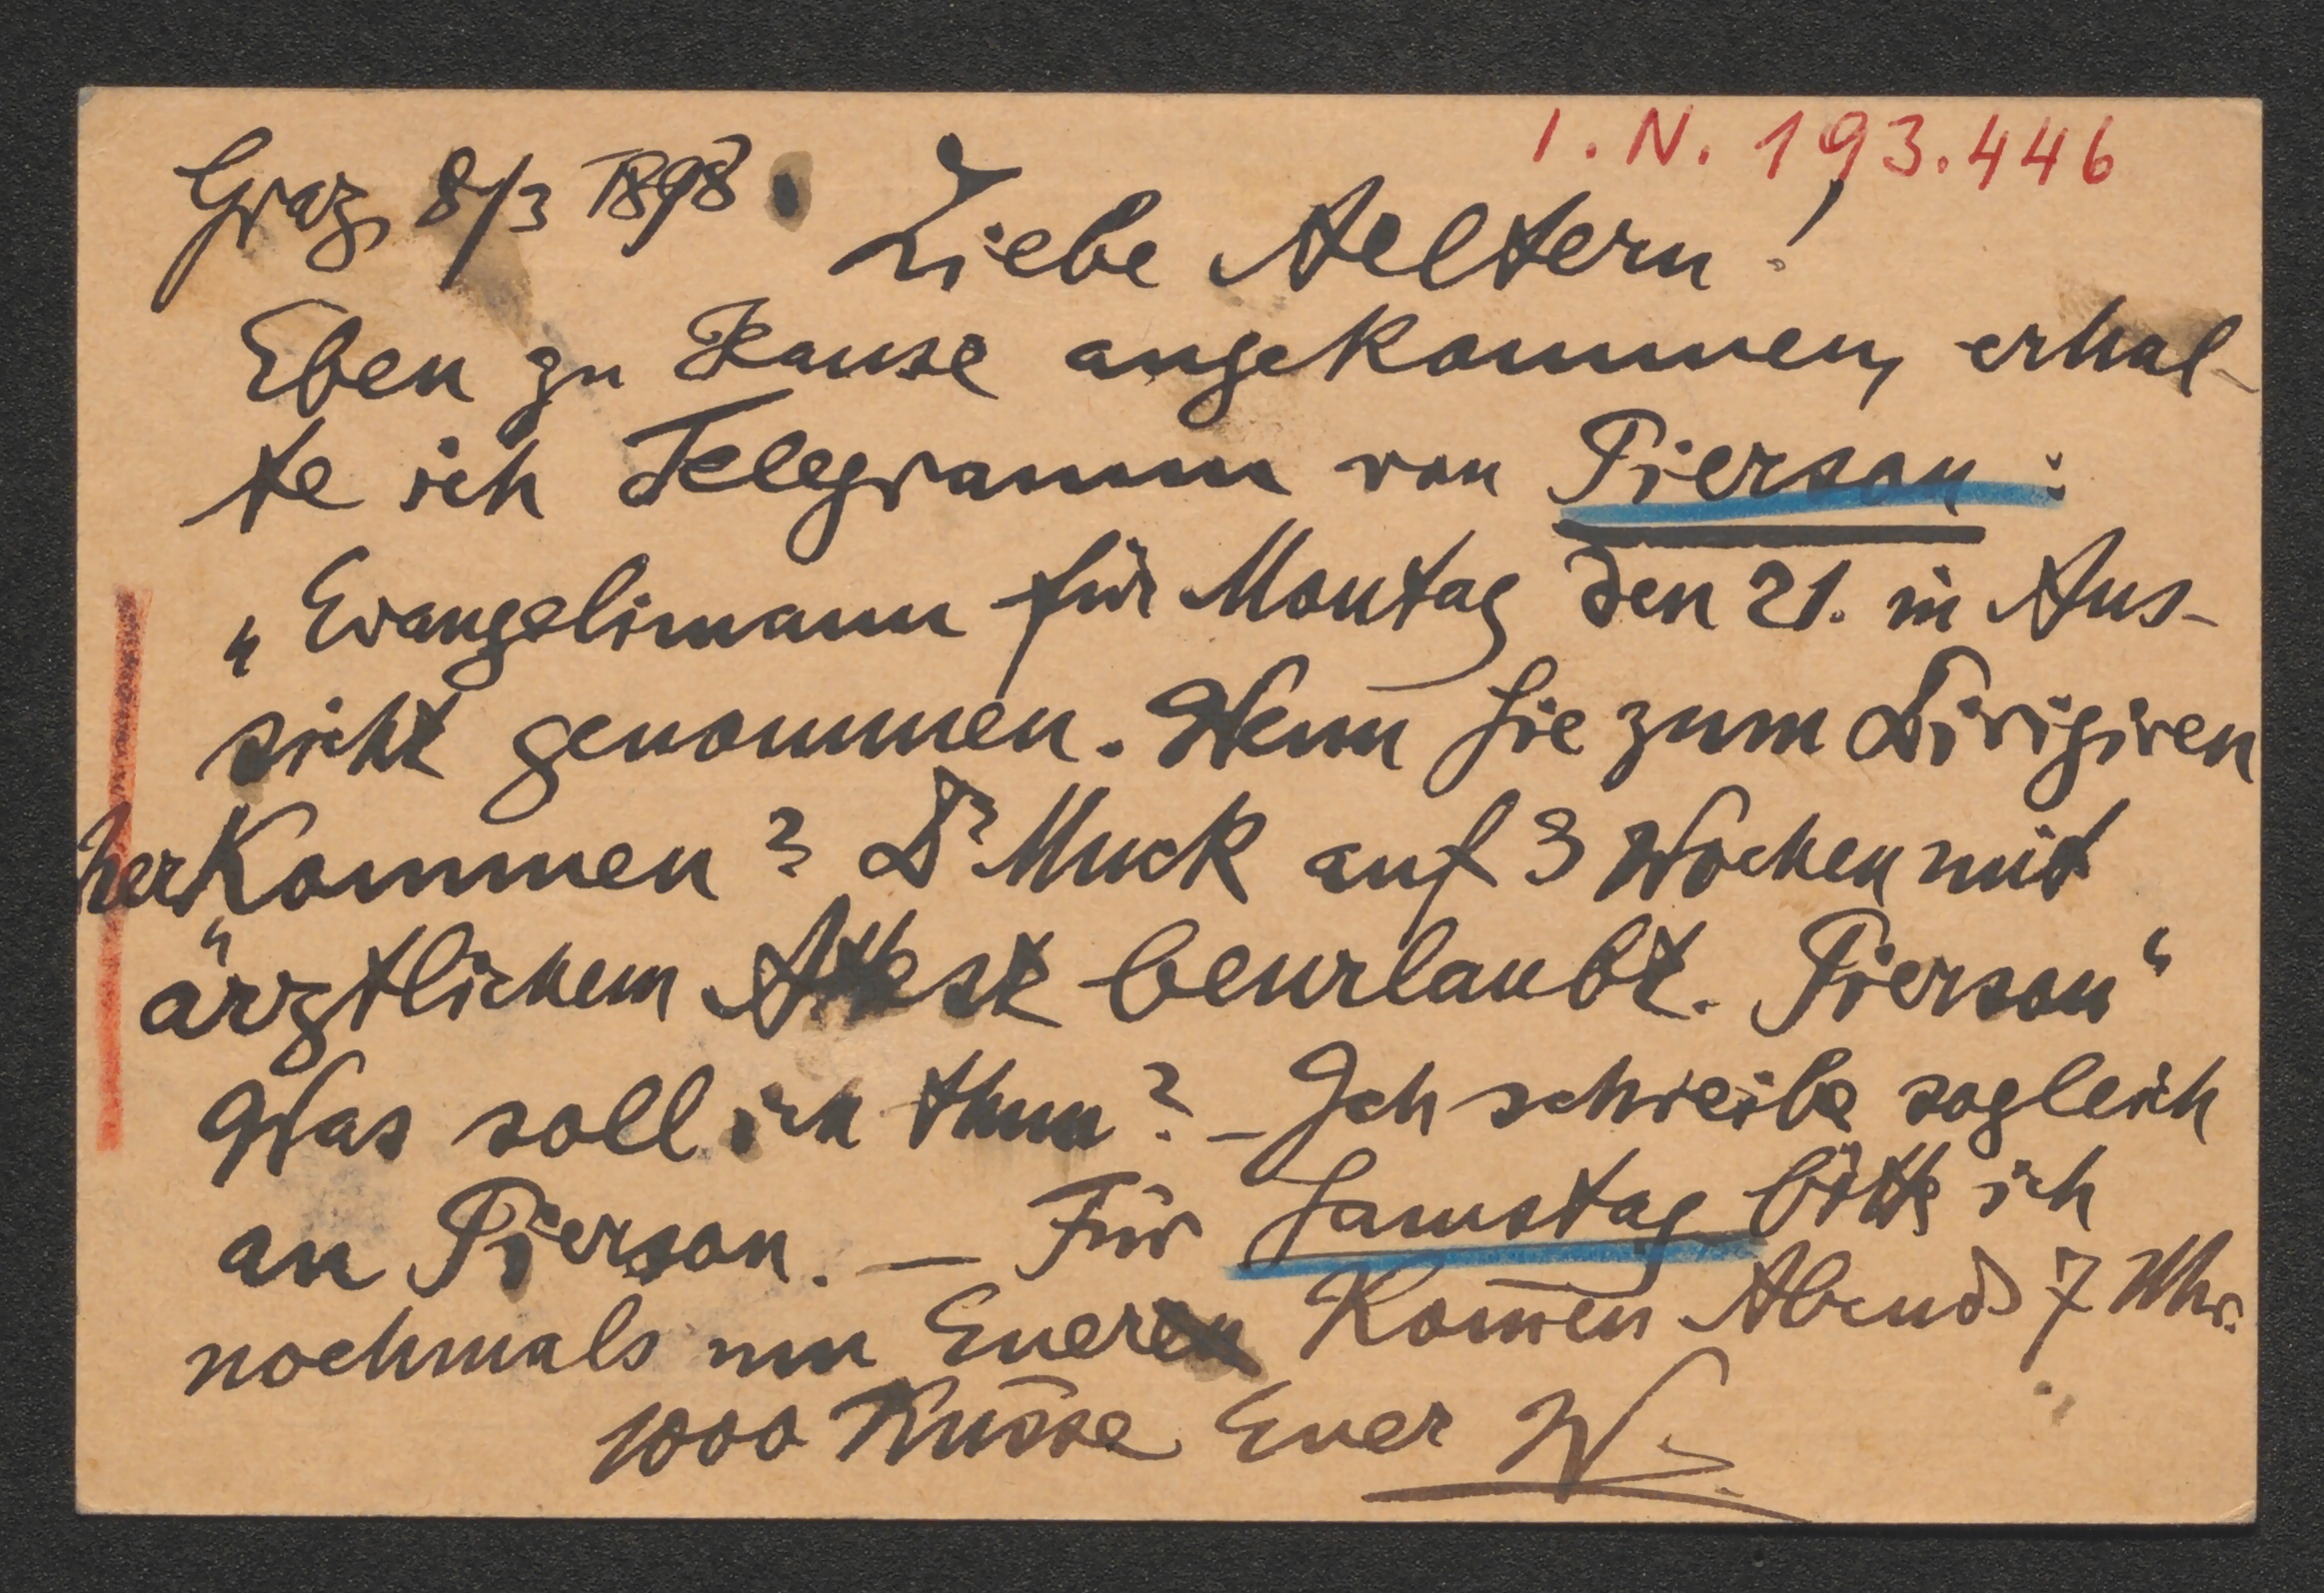 I.N. 193.446
Graz, 8/3 1898.
Liebe Aeltern!
Eben zu Hause angekommen, erhal-
te ich Telegramm von Pierson:
„Evangelimann für Montag den 21. in Aus-
sicht genommen. Wenn Sie zum Dirigiren
herkommen? Dr Muck auf 3 Wochen mit
ärztlichem Attest beurlaubt. Pierson“
Was soll ich thun? – Ich schreibe sogleich
an Pierson. – Für Samstag bitte ich
nochmals um Euer Kom̄en Abends 7 Uhr.
1000 Küsse Euer W.